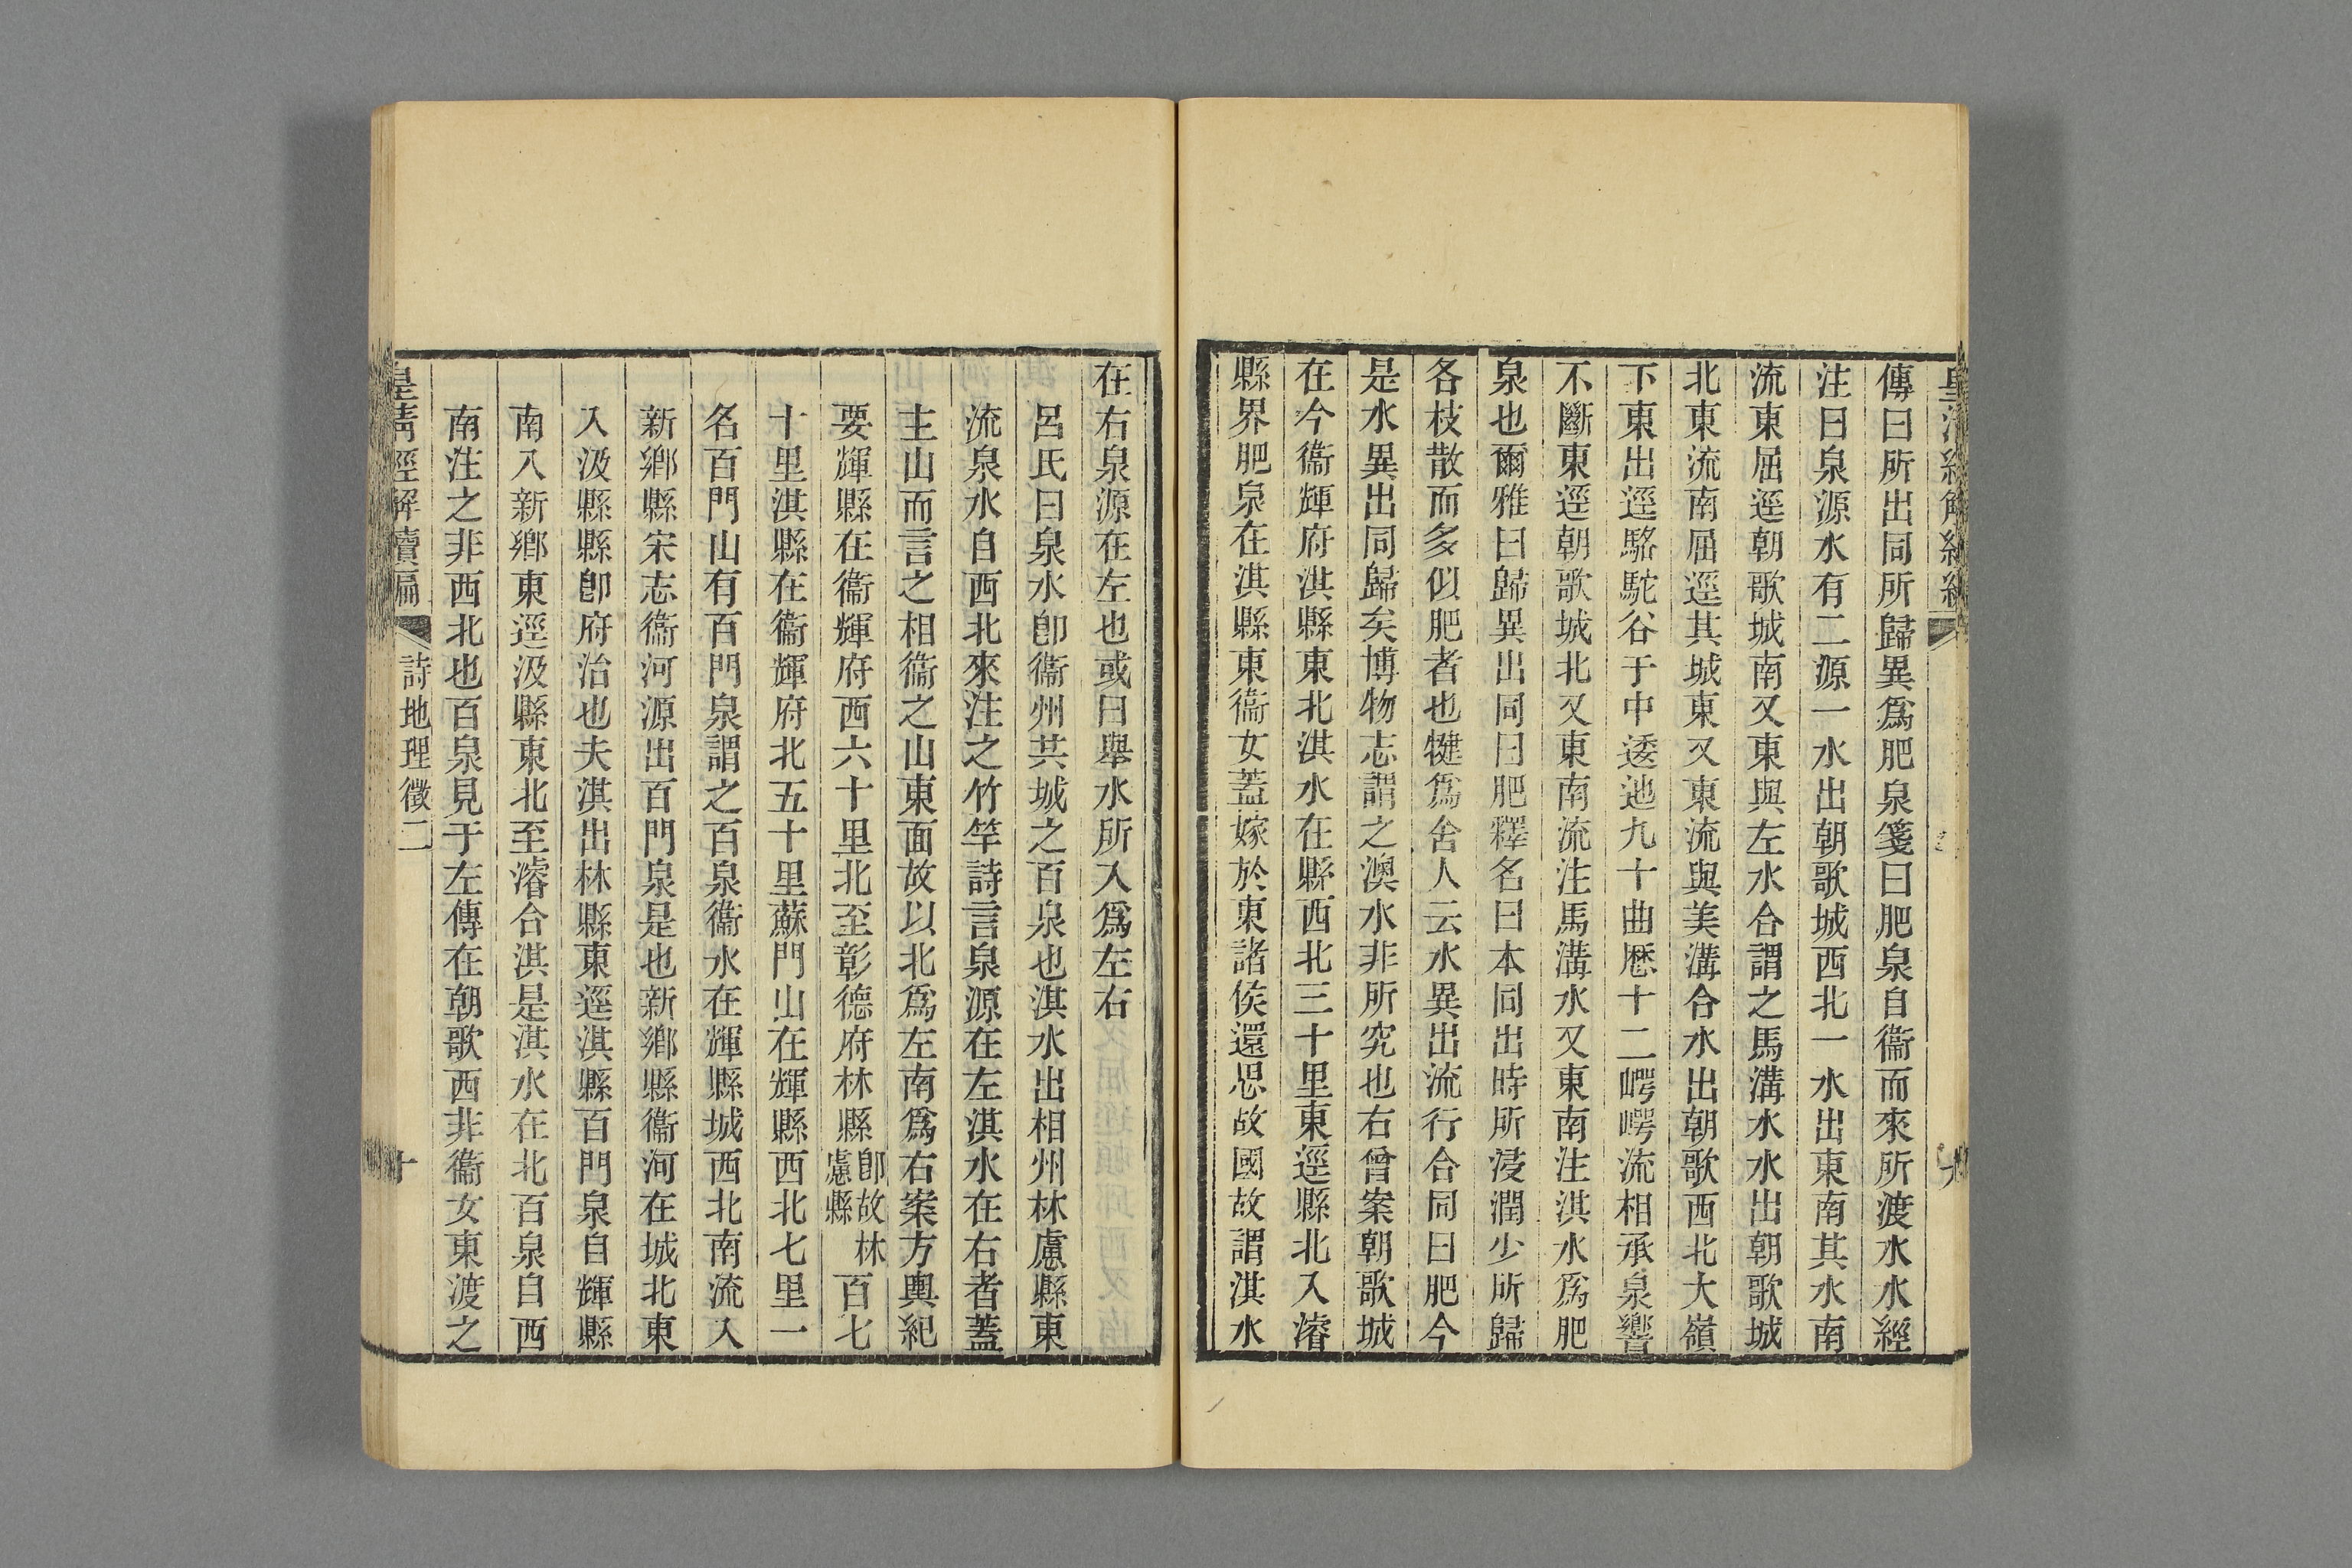 傳曰所出同所歸異爲肥泉箋曰肥泉自衞而來所渡水水經
注曰泉源水有二源一水出朝歌城西北一水出東南其水南
流東屈逕朝歌城南又東與左水合謂之馬溝水水出朝歌城
北東流南屈逕其城東又東流與美溝合水出朝歌西北大嶺
下東出逕駱駝谷于中逶迆九十曲歷十二崿崿流相承泉響
不斷東逕朝歌城北又東南流注馬溝水又東南注淇水爲肥
泉也爾雅曰歸異出同曰肥釋名曰本同出時所浸潤少所歸
各枝散而多似肥者也犍爲舍人云水異出流行合同曰肥今
是水異出同歸矣博物志謂之澳水非所究也右曾案朝歌城
在今衞輝府淇縣東北淇水在縣西北三十里東逕縣北入濬
縣界肥泉在淇縣東衞女蓋嫁於東諸侯還思故國故謂淇水
在右泉源在左也或曰舉水所入爲左右
呂氏曰泉水卽衞州共城之百泉也淇水出相州林慮縣東
流泉水自西北來注之竹竿詩言泉源在左淇水在右者蓋
主山而言之相衞之山東面故以北爲左南爲右案方輿紀
要輝縣在衞輝府西六十里北至彰德府林縣卽故林慮縣百七
十里淇縣在衞輝府北五十里蘇門山在輝縣西北七里一
名百門山有百門泉謂之百泉衞水在輝縣城西北南流入
新鄉縣宋志衞河源出百門泉是也新鄉縣衞河在城北東
入汲縣縣卽府治也夫淇出林縣東逕淇縣百門泉自輝縣
南入新鄉東逕汲縣東北至濬合淇是淇水在北百泉自西
南注之非西北也百泉見于左傳在朝歌西非衞女東渡之
皇清經解續編 詩地理徵二 十